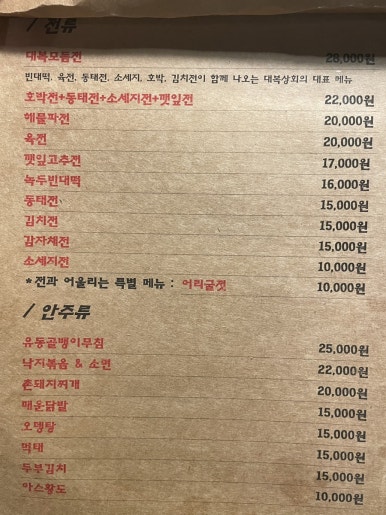 / 전류
대복모듬전 28,000원
빈대떡, 육전, 동태전, 소세지, 호박, 김치전이 함께 나오는 대복상회의 대표 메뉴
호박전+동태전+소세지전+깻잎전 22,000원
해물파전 20,000원
육전 20,000원
깻잎고추전 17,000원
녹두빈대떡 16,000원
동태전 15,000원
김치전 15,000원
감자채전 15,000원
소세지전 10,000원
*전과 어울리는 특별 메뉴 : 어리굴젓 10,000원
/ 안주류
유동골뱅이무침 25,000원
낙지볶음 & 소면 22,000원
돈돼지찌개 20,000원
매운닭발 15,000원
오뎅탕 15,000원
먹태 15,000원
두부김치 15,000원
아스황도 10,000원